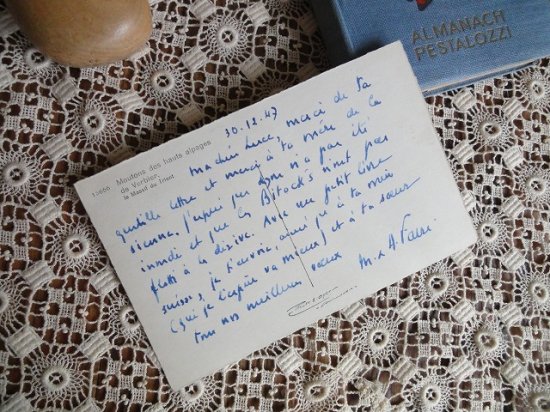 ALMANACH
PESTALOZZI
13660 Moutons des hauts alpages
de Verbier.
le Massif du Trient
30.12.47
ma chère Luce, merci de ta
gentille lettre et merci à ta mère de la
sienne. J'espère que n'a pas été
inondé et que les n'ont pas
à la dérive. Avec un petit livre
suisse, je t'envoie, ainsi qu'à ta mère
(qui je l'espère va mieux) et à ta sœur
tous nos meilleurs vœux M. & A.